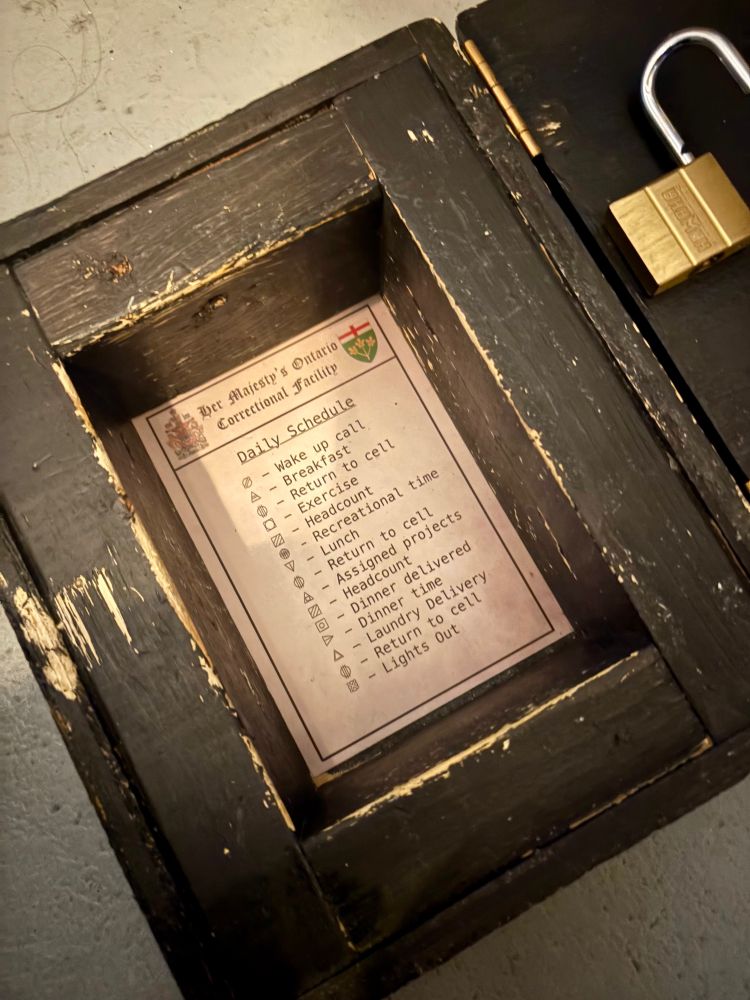 Her Majesty's Ontario
Correctional Facility
Daily Schedule
– Wake up call
– Breakfast
– Return to cell
– Exercise
– Headcount
– Recreational time
– Lunch
– Return to cell
– Assigned projects
– Headcount
– Dinner delivered
– Dinner time
– Laundry Delivery
– Return to cell
– Lights Out